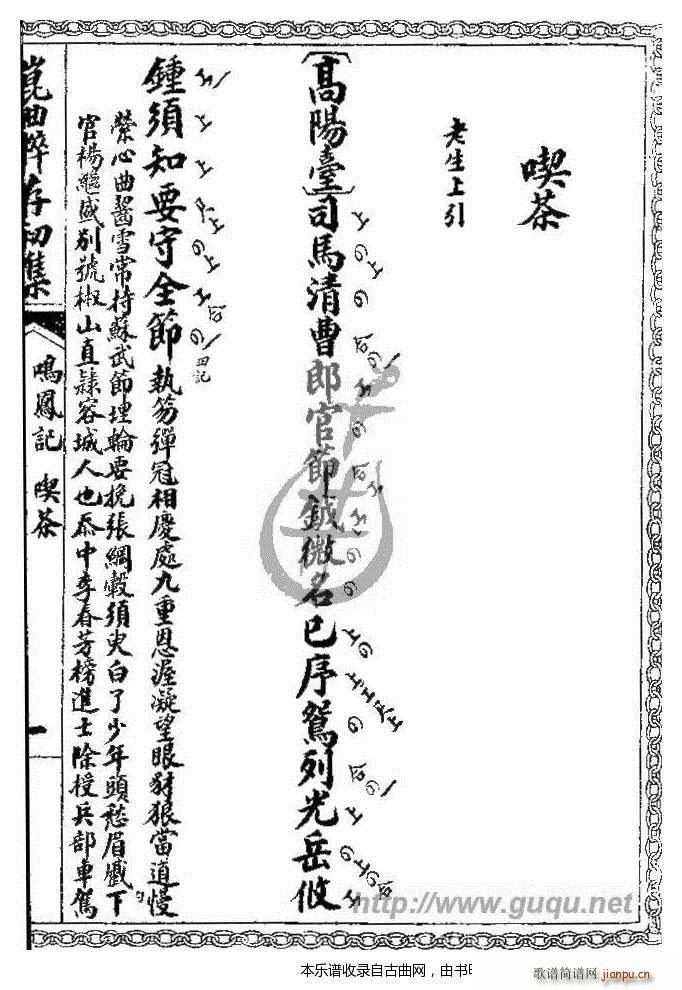 喫茶
老生上引
〔高陽臺〕司馬清曹郎官節鉞微名已序鴛列光岳攸
鍾須知要守全節執笏彈冠相慶處九重恩渥凝望眼豺狼當道慢
縈心曲齧雪常持蘇武節埋輪要挽張綱轂須臾白了少年頭愁眉蹙下
官楊繼盛別號椒山直隸容城人也忝中李春芳榜進士除授兵部車駕
崑曲粹存初集
鳴鳳記 喫茶
一
http://www.guqu.net
本乐谱收录自古曲网，由书
歌谱简谱网 jianpu.cn